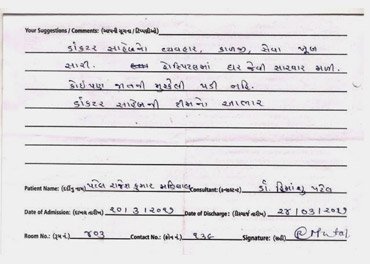 Your Suggestions / Comments: (આપની સૂચના / ટિપ્પણીઓ)
ડૉકટર સાહેબનો વ્યવહાર, કાળજી, સેવા ખૂબ
સારી. હોસ્પિટલમાં ઘર જેવી સારવાર મળી.
કોઈપણ જાતની મુશ્કેલી પડી નહિ.
ડૉકટર સાહેબની ટીમનો આભાર
Patient Name: (દર્દીનું નામ) પટેલ રાજેશ કુમાર Consultant: ડૉ. હિમાંશુ પટેલ
Date of Admission: (દાખલ તારીખ) Date of Discharge:
Room No.: (રૂમ નં.) ૪૦૩ Contact No.: (ફોન નં.) Signature: (સહી)